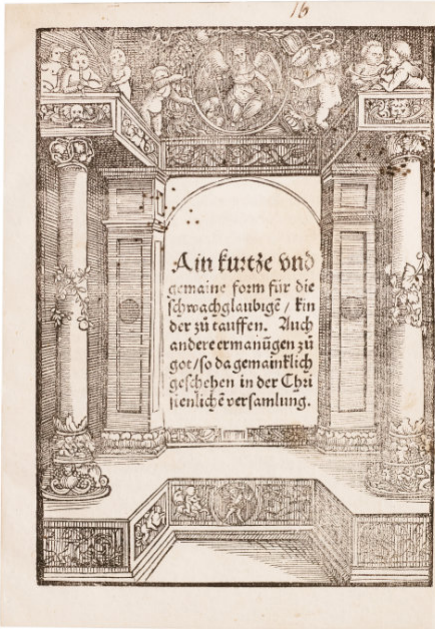 16
Ain kurtze vnd
gemaine form für die
schwachglaubigē / kin
der zů tauffen. Auch
andere ermanūgen zů
got / so da gemainklich
geschehen in der Chri
stenlichē versamlung.